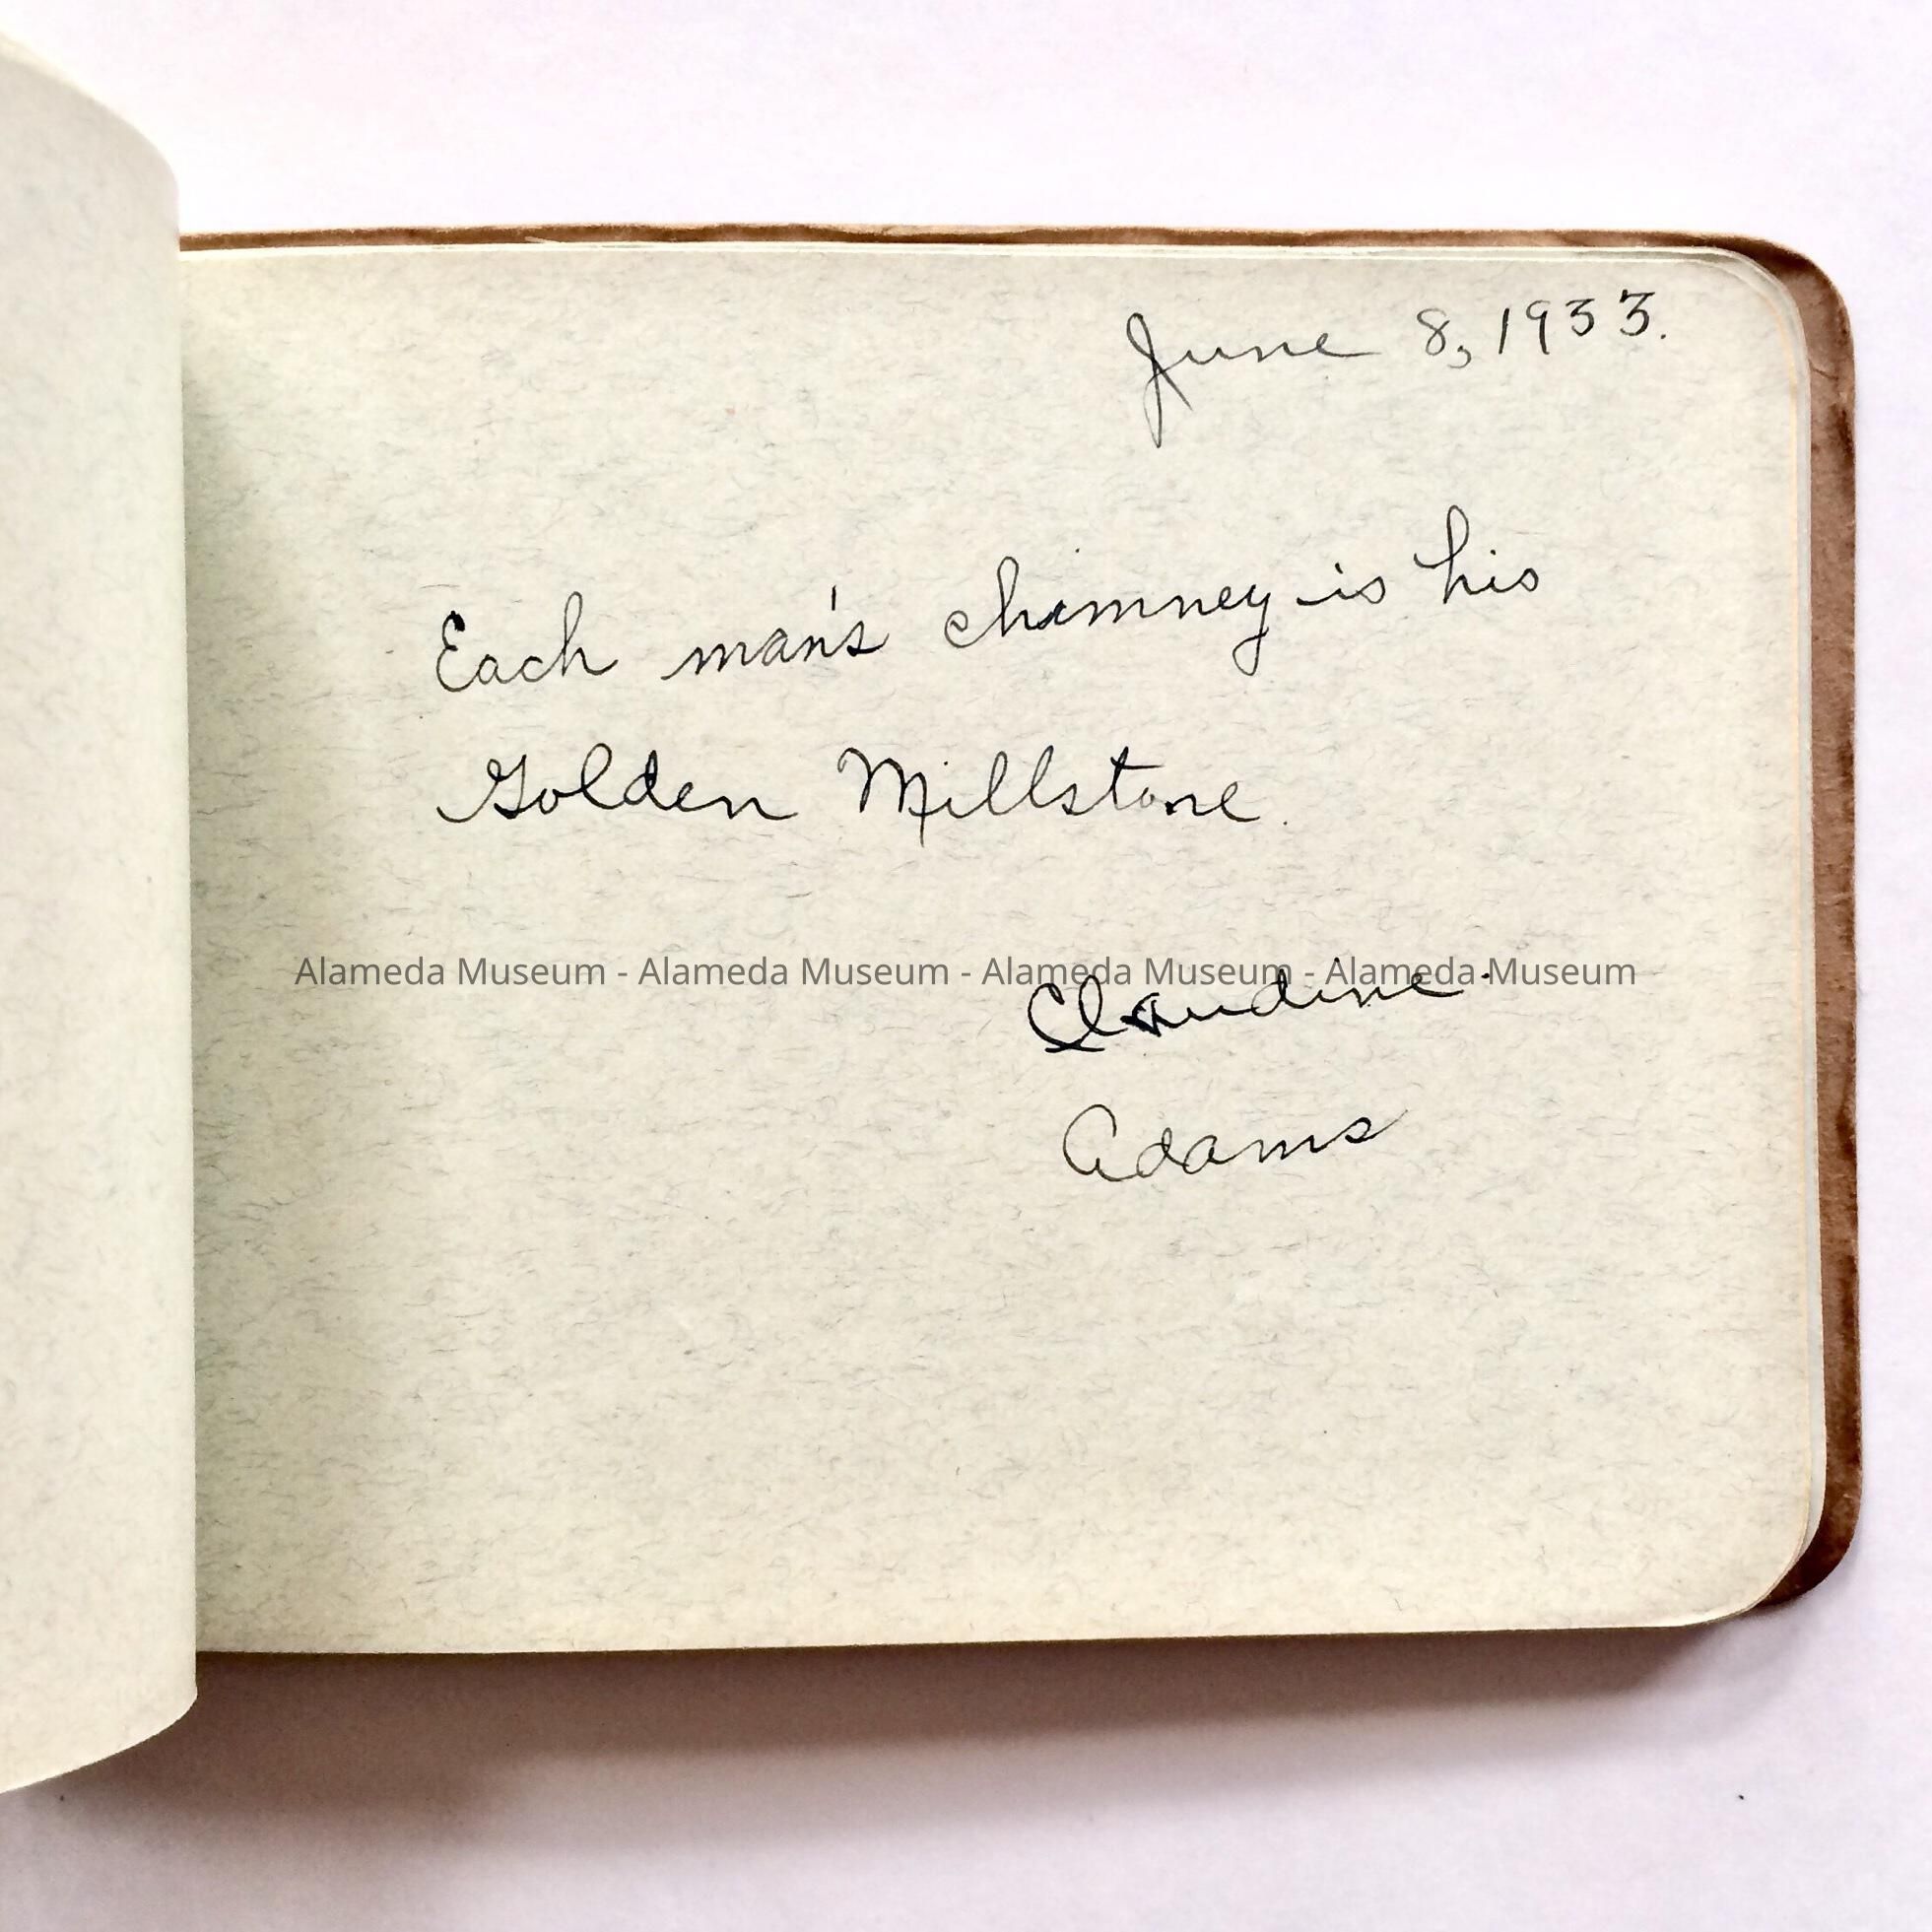 June 8, 1933.
Each man's chimney is his
Golden Millstone.
Alameda Museum - Alameda Museum - Alameda Museum - Alameda Museum
Claudine
Adams